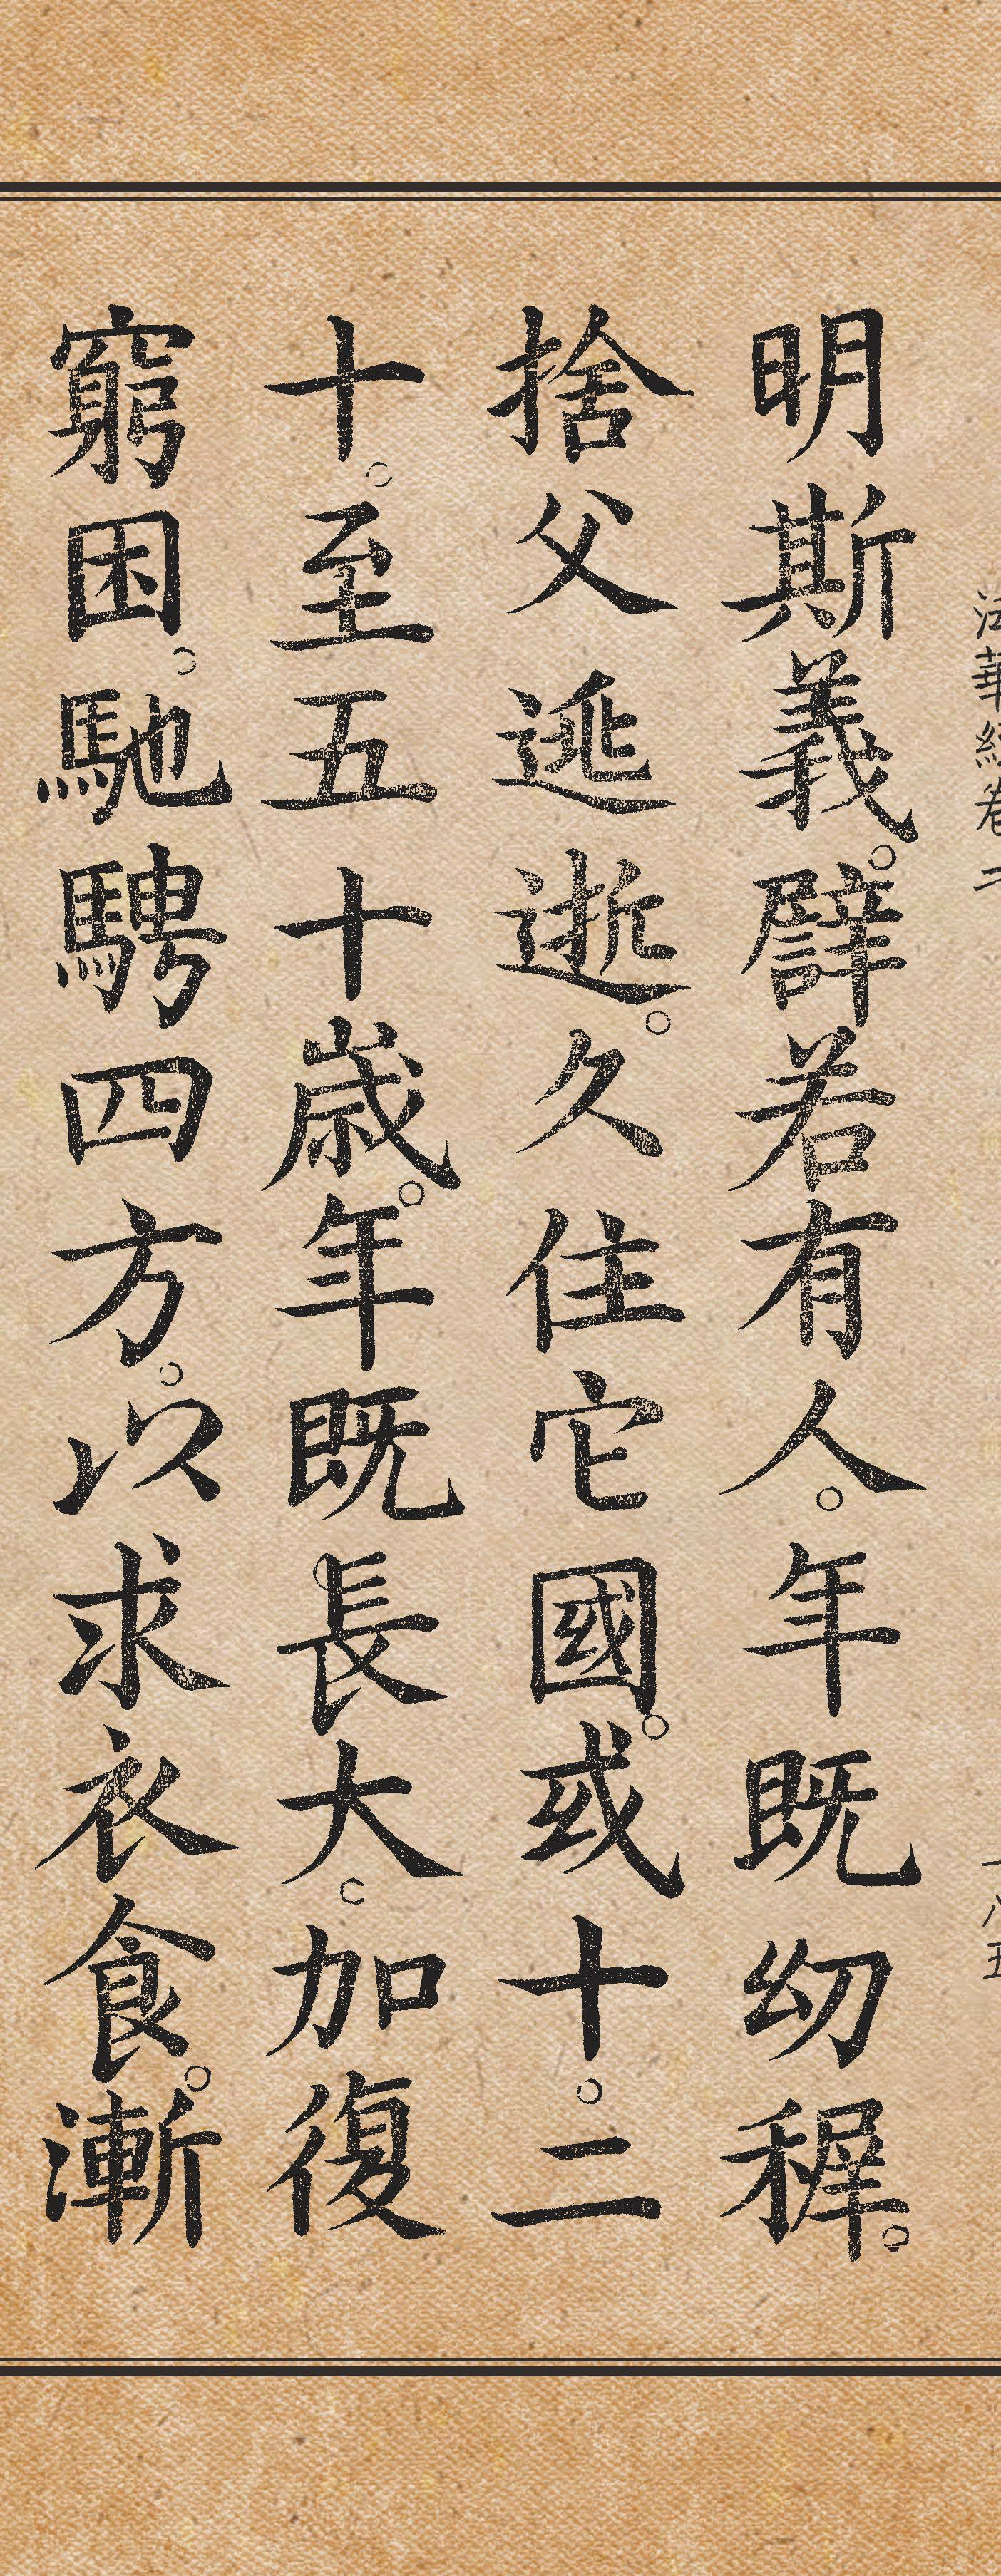 法華經卷二
一八五
明斯義。譬若有人。年既幼稺。
捨父逃逝。久住它國。或十。二
十。至五十歲。年既長大。加復
窮困。馳騁四方。以求衣食。漸